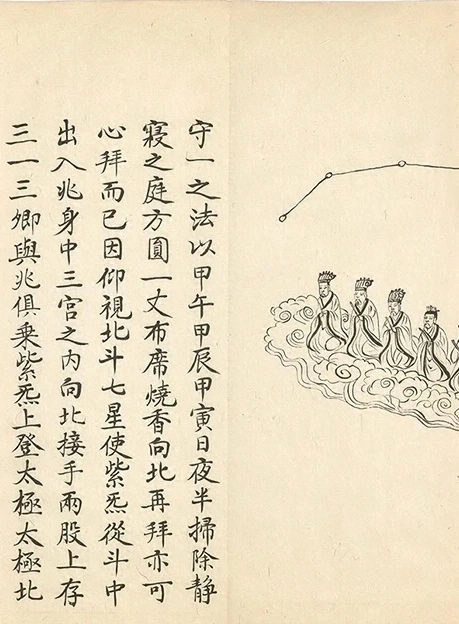 守一之法以甲午甲辰甲寅日夜半掃除静
寝之庭方圓一丈布席燒香向北再拜亦可
心拜而已因仰視北斗七星使紫炁從斗中
出入兆身中三宮之内向北接手兩股上存
三一三卿與兆俱乗紫炁上登太極太極北